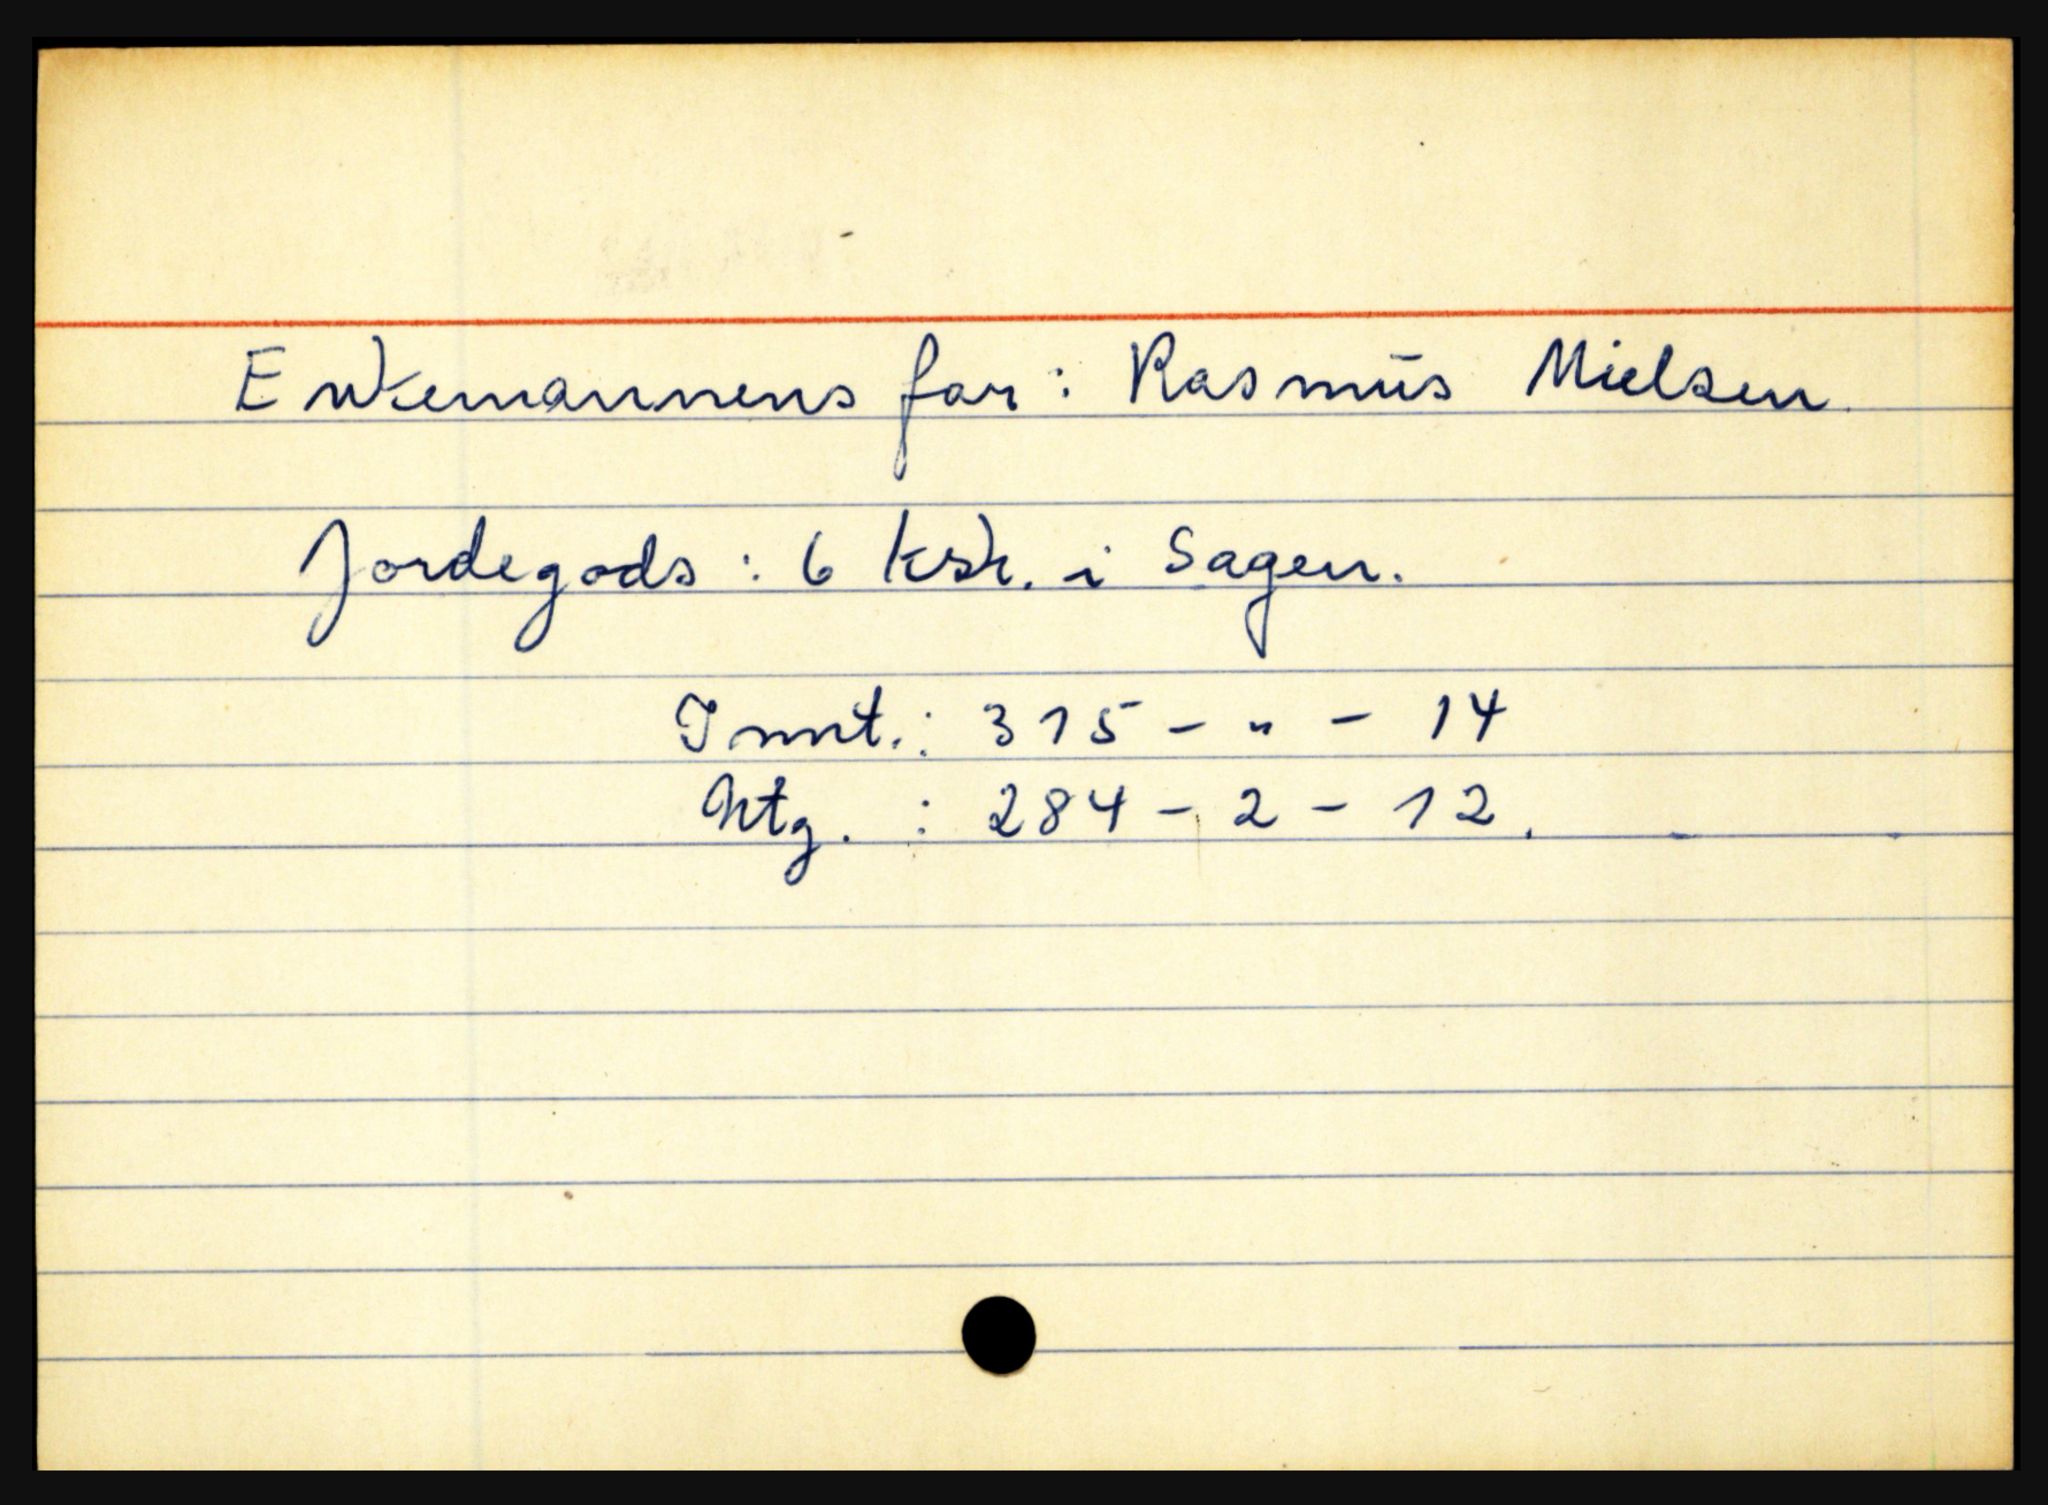 Enkemannens far: Rasmus Nielsen.
Jordegods: 6 ksk. i Sagen.
Innt.: 315 - " - 14
Utg. : 284 - 2 - 12.